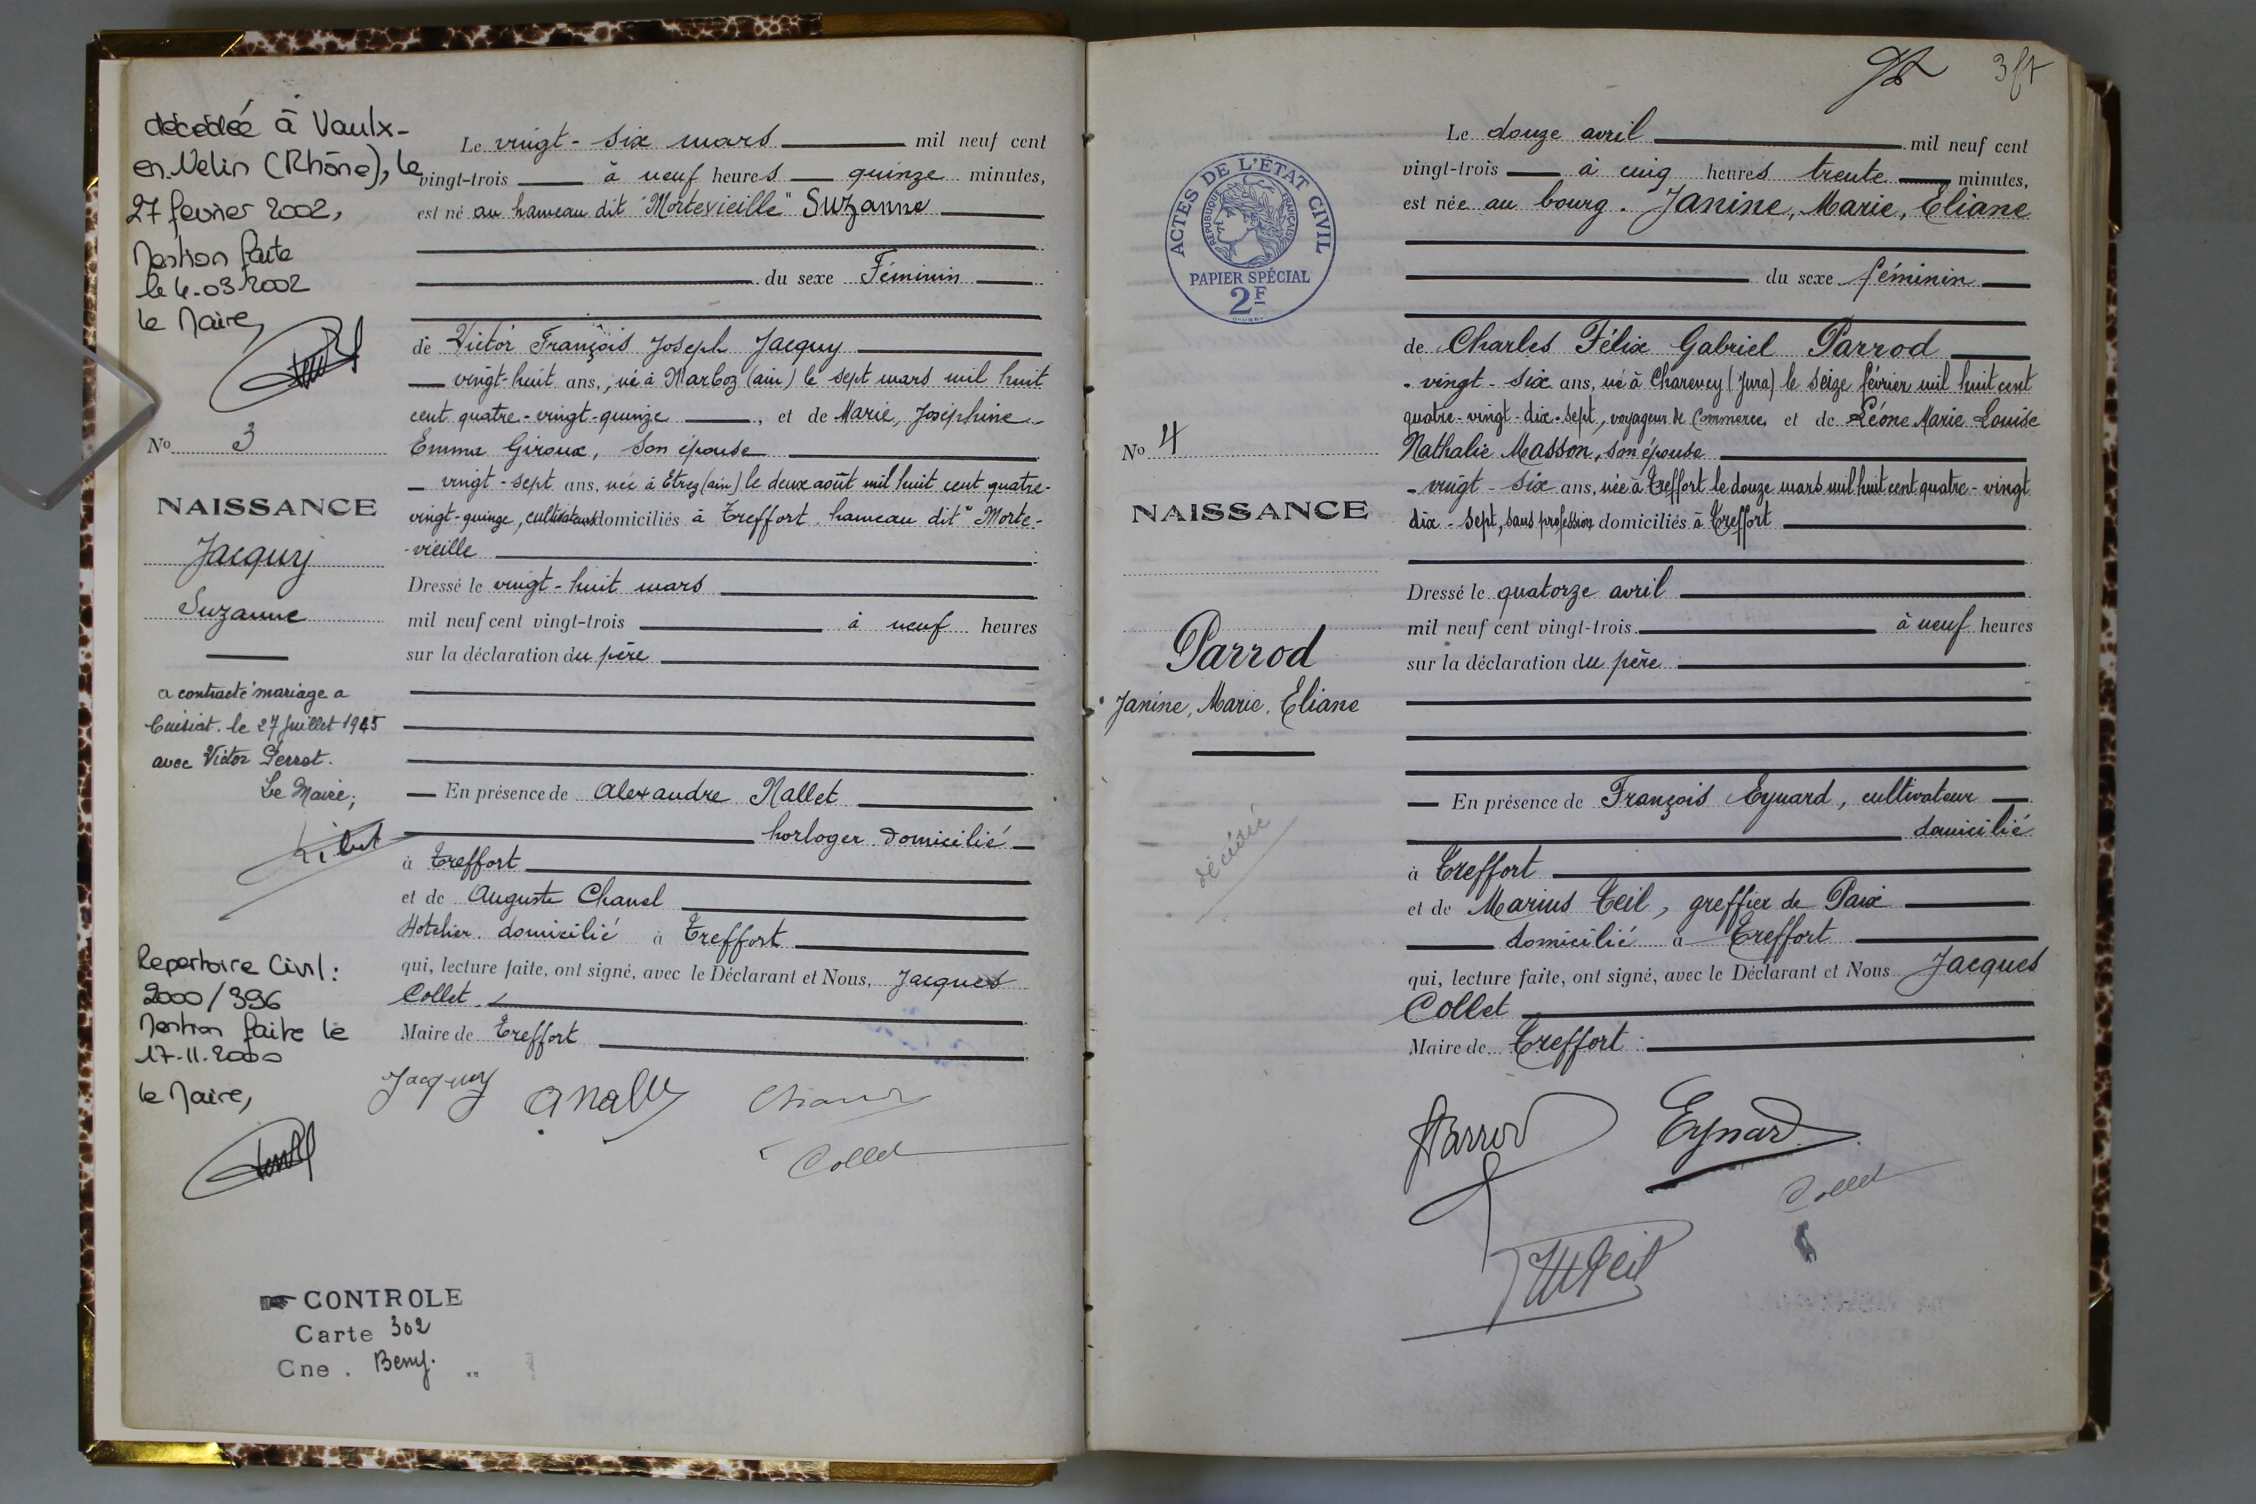 décédée à Vaulx-
en-Velin (Rhône), le
27 février 2002,
Mention faite
le 4.03.2002
le Maire,
No 3
NAISSANCE
Jacquy
Suzanne
a contracté mariage a
Cuisiat. le 27 Juillet 1945
avec Victor Perret.
Le Maire,
Repertoire Civil :
2000/396
Mention faite le
17-11-2000
le Maire,
Le vingt-six mars mil neuf cent
vingt-trois à neuf heures quinze minutes,
est né au hameau dit "Mortevieille" Suzanne
du sexe Féminin
de Victor François Joseph Jacquy
vingt-huit ans, né à Marboz (ain) le sept mars mil huit
cent quatre-vingt-quinze, et de Marie, Joséphine
Emma Giroux, son épouse
vingt-sept ans, née à Etrez (ain) le deux août mil huit cent quatre-
vingt-quinze, cultivateurs domiciliés à Treffort hameau dit "Morte-
-vieille
Dressé le vingt-huit mars
mil neuf cent vingt-trois à neuf heures
sur la déclaration du père
En présence de Alexandre Nallet
horloger domicilié
à Treffort
et de Auguste Chanel
Hotelier domicilié à Treffort
qui, lecture faite, ont signé, avec le Déclarant et Nous, Jacques
Collet
Maire de Treffort
Jacquy
Collet
CONTROLE
Carte 302
Cne. Beny.
3
ACTES DE L'ÉTAT CIVIL
RÉPUBLIQUE FRANÇAISE
PAPIER SPÉCIAL
2F
No 4
NAISSANCE
Parrod
Janine, Marie, Eliane
décédée
Le douze avril mil neuf cent
vingt-trois à cinq heures trente minutes,
est née au bourg. Janine, Marie, Eliane
du sexe féminin
de Charles Félix Gabriel Parrod
vingt-six ans, né à Charency (Jura) le seize février mil huit cent
quatre-vingt-dix-sept, voyageur de Commerce, et de Léone Marie Louise
Nathalie Masson, son épouse
vingt-six ans, née à Treffort le douze mars mil huit cent quatre-vingt
dix-sept, sans profession domiciliés à Treffort
Dressé le quatorze avril
mil neuf cent vingt-trois à neuf heures
sur la déclaration du père
En présence de François Eynard, cultivateur
domicilié
à Treffort
et de Marius Teil, greffier de Paix
domicilié à Treffort
qui, lecture faite, ont signé, avec le Déclarant et Nous Jacques
Collet
Maire de Treffort
Parrod
Eynard
Collet
MTeil